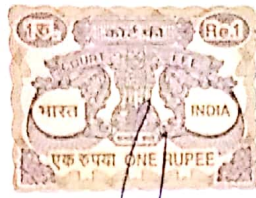 1 रु. कोर्ट फी Re.1
COURT FEE
भारत INDIA
एक रुपया ONE RUPEE